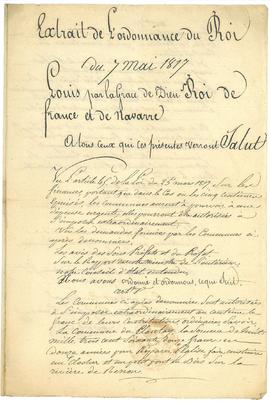 Extrait de l'ordonnance du Roi
du 7 mai 1817
Louis par la Grace de Dieu Roi de
france et de Navarre
A tous ceux qui ces présentes verront Salut
Vu l'article 46 de la Loi du 25 mars 1817 sur les
finances portant que dans le cas où les cinq centimes
épuisés, les communes auront à pourvoir à une
dépense urgente, elles pourront être autorisées à
s'imposer extraordinairement
Vu les demandes formées par les Communes ci
après dénommées,
Les avis des Sous Préfets et du Préfet
Sur le Rapport de notre Ministre de l'intérieur
notre Conseil d'état entendu
Nous avons ordonné et ordonnons ce qui suit
art 1er
Les Communes ci après dénommées sont autorisées
à s'imposer extraordinairement au centime le
franc de leurs Contributions
La Commune de la somme de huit
mille trois cent soixante douze francs en
douze années pour Réparer l'Église faire construire
un Clocher et un petit pont de Bois sur la
rivière de